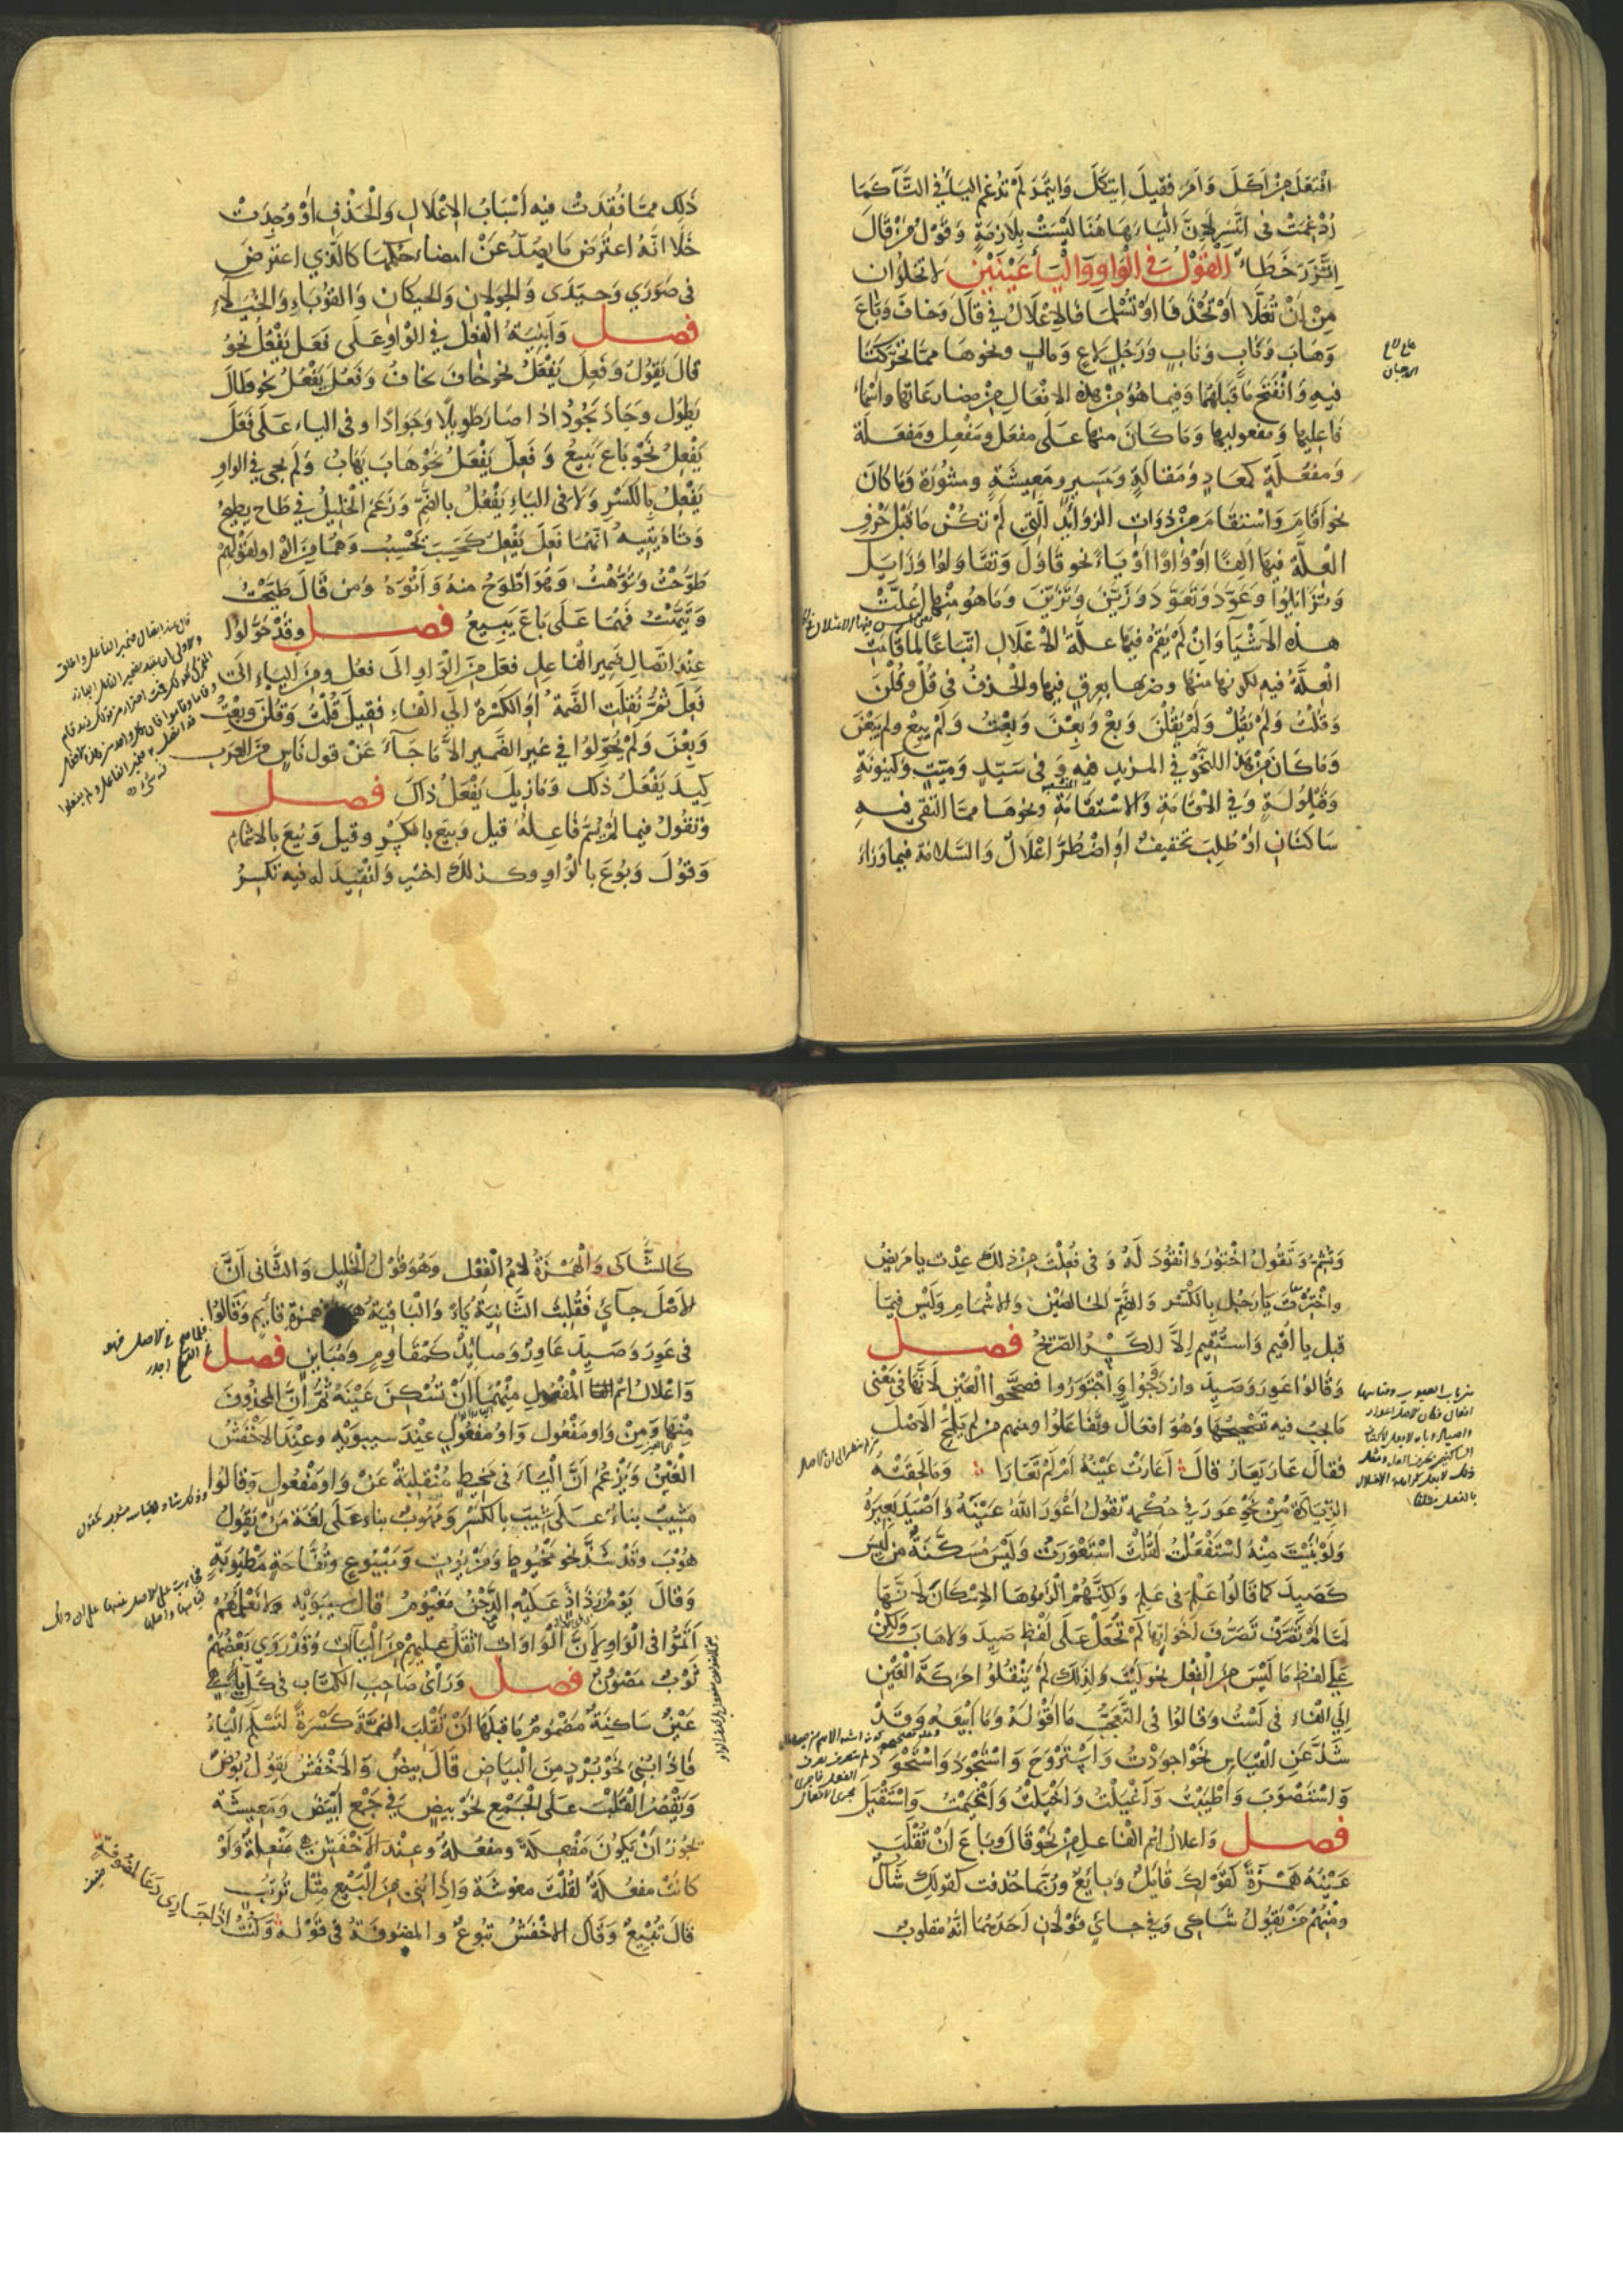 افْتَعَلَ مِنْ اَكَلَ وَ اَمَرَ فقِيلَ اِيتَكَلَ وَايتَمَرَ لَمْ تُدْغِم اليَاءَ في التَّاءِ كَمَا
اُدْغِمَتْ في اتَّسَر لِاَنَّ اليَاءَ هَاهُنَا لَيْسَتْ بِلَازِمَةٍ وَقَوْلُ مَنْ قَالَ
اِتَّزَرَ خَطَاءٌ القَوْلُ في الْوَاوِ وَالْيَاءِ عَيْنَيْنِ لا تخلُوان
مِنْ اَنْ تُعَلَّا اَوْ تُحْذَفَا اَوْ تَسْلَمَا فالاِعْلَالُ في قَالَ وَخَافَ وَبَاعَ
وَهَابَ وَبَابٍ وَنَابٍ وَرَجُلٍ لاعٍ وَمَالٍ ونحوهَا ممَّا تَحَرَّكَتَا
فيهِ وَانْفَتَحَ مَا قَبلَهُمَا وَفيما هُوَ مِنْ هذه الافعَالِ مِنْ مضارعَاتها واَسْمَاءِ
فَاعِليها وَمفعوليها وَمَا كَانَ منها عَلَى مفعَلٍ ومَفْعِلٍ ومَفعَلَةٍ
وَمفعُلَةٍ كمَعَادٍ وَمَقالَةٍ وَمَسِيرٍ ومَعِيشَةٍ ومشُورَةٍ وَمَا كانَ
نحو اَقَامَ وَاسْتقَامَ مِنْ ذَوَاتِ الزوَائِدِ الَّتي لَمْ تكُنْ مَا قَبْلَ حَرْفِ
العِلَّةِ فيها اَلِفًا اَوْ وَاوًا اَوْ يَاءً نحو قَاوَلَ وَتَقَاوَلُوا وَزَايَلَ
وَتَزَايَلُوا وَعَوَّدَ وَتَعَوَّدَ وَزَيَّنَ وَتَزَيَّنَ وَمَا هُوَ مِنْهَا اُعِلَّتْ
هذه الاَشْيَاءُ وَاِنْ لَمْ تقُمْ فيها علَّةُ الاِعْلَالِ اتِّبَاعًا لما قَامَتْ
العلَّةُ فيه لكونها منها وضربها بعِرقٍ فيها والحَذفُ في قُلْ وَقُلْنَ
وَقُلْتُ وَلَمْ يَقُلْ وَلَمْ يَقُلْنَ وَبِعْ وَبِعْنَ وَبِعْتُ وَلَمْ يَبِعْ ولم يَبِعْنَ
وَمَا كَانَ مِنْ هذا النَّحْوِ في المزيد فيه وَ في سَيّدٍ وَمَيّتٍ وَكَينونَةٍ
وَقَيْلُولَةٍ وَفي الاِقَامَةِ وَالاسْتقَامَةِ ونحوهَا ممَّا التقَى فيه
سَاكنَانِ اَوْ طُلِبَ تخفيفٌ اَوِ اضْطُرَّ اِعْلَالٌ وَالسَّلامَة فيما وَرَاءَ
ذَلِكَ ممَّا فُقِدَتْ فيه اَسْبَابُ الاِعْلَالِ وَالْحَذْفِ اَوْ وُجِدَتْ
خَلَا انَّهُ اعتَرَضَ مَا يصدُّ عَنْ امضاءِ حُكْمِهَا كالَّذي اعترَضَ
في صَوَرَى وَحَيَدَى وَالجَوَلانِ وَالحَيَكانِ وَالقُوَبَاءِ وَالخُيَلَاءِ
فصل وَاَبنيَةُ الفِعْلِ في الْوَاوِ عَلَى فَعَلَ يَفْعُلُ نَحْوُ
قالَ يَقُولُ وَفَعِلَ يَفْعَلُ نحو خافَ يخافُ وَفَعُلَ يَفْعُلُ نحو طَالَ
يَطُولُ وجَادَ يَجُودُ اذا صَارَ طويلًا وَجَوَادًا وفي الياء عَلَى فَعَلَ
يَفْعِلُ نَحْوُ بَاعَ يَبيعُ وَفَعِلَ يَفْعَلُ نَحْوُ هَابَ يَهَابُ وَلَم يجئ في الواوِ
يَفْعِلُ بالكَسْرِ وَلَا في اليَاءِ يَفْعُلُ بالضَّمِّ وَزَعَمَ الخَلِيلُ في طَاحَ يطيحُ
وَتَاهَ يَتيهُ اَنَّهُمَا فَعِلَ يَفْعِلُ كحَسِبَ يَحْسِبُ وَهُمَا مِنَ الواو لقَوْلِهِمْ
طَوَّحْتُ وَتَوَّهْتُ وَهُوَ اَطْوَحُ منه وَاَتْوَهُ وَمن قَالَ طَيَّحْتُ
وَتَيَّهْتُ فَهُمَا عَلَى بَاعَ يَبيعُ فصل وقَدْ حَوَّلُوا
عِنْدَ اتّصَالِ ضَمِيرِ الفاعلِ فعَلَ مِنَ الْوَاوِ اِلَى فَعُلَ ومِنَ اليَاءِ اِلَى
فَعِلَ ثُمَّ نُقِلَتِ الضَّمَّةُ اَوِ الكَسْرَةُ اِلَى الفَاءِ فَقِيلَ قُلْتُ وَقُلْنَ وَبِعْتُ
وَبِعْنَ وَلَمْ يُحَوِّلُوا في غَيرِ الضَّميرِ الاَّ مَا جَاءَ عَنْ قول نَاسٍ مِنَ العَرَب
كِيدَ يَفْعَلُ ذلك وَمَا زِيلَ يَفْعَلُ ذاكَ فصل
وَتقُولُ فيما لَمْ يُسَمَّ فَاعِلُهُ قِيلَ وَبِيعَ بالكَسْرِ وقيل وَبِيعَ بالاشمامِ
وَقُولَ وَبُوعَ بالوَاوِ وكذلك اختيرَ وَانْقِيدَ له فيه تكسرُ
وَتُشِمُّ وَتَقُولُ اخْتُورَ وَانْقُودَ لَهُ وَ في فُعِلْتَ مِنْ ذلك عِدْتَ يا مَريضُ
واخْتِرْتَ يَا رَجُلُ بِالكَسْرِ وَالضَّمِّ الخالصَيْنِ وَالاشمَامِ وَلَيْسَ فيمَا
قبل يا اُقيمَ وَاسْتُقِيمَ اِلاَّ الكَسْرُ الصّريحُ فصل
وَقَالُوا عَوِرَ وَصَيِدَ وازْدَوَجُوا وَاجْتَوَرُوا فصحَّحُوا العَيْنَ لاَنَّهَا في مَعْنى
مَا يجبُ فيه تصحيحُهَا وَهُوَ افعَالَّ وتَفَاعَلُوا ومنهم مَنْ لم يَلْمَحِ الاَصْلَ
فقالَ عَارَ يَعَارُ قَالَ اَعَارَتْ عَيْنُهُ اَمْ لَمْ تَعَارَا وَمَا لَحِقَتْهُ
الزّيَادَةُ مِنْ نَحْوِ عَوِرَ في حُكْمه تقُولُ اَعْوَرَ اللهُ عَيْنَهُ وَاَصْيَدَ بَعِيرَهُ
وَلَوْ بَنَيْتَ مِنْهُ اسْتَفْعَلْتُ لَقُلْتَ اسْتَعْوَرْتُ وَلَيْسَ مُسَكَّنَةٌ من لَيِسَ
كَصَيِدَ كمَا قَالُوا عَلْمَ في عَلِمَ وَلكِنَّهُمْ الْزَمُوهَا الاِسْكَانَ لاَنَّهَا
لمَّا لَمْ تَصَرَّفْ تَصَرُّفَ اَخَوَاتِهَا لَمْ تُجْعَلْ عَلَى لَفْظِ صَيِدَ وَلاَ هَابَ وَلكِنْ
عَلَى لفظِ مَا لَيْسَ مِنَ الفِعْل نحو لَيْتَ وَلِذلكَ لَمْ يَنْقُلُوا حَرَكَةَ العَيْنِ
اِلَى الفَاءِ في لَسْتُ وَقَالُوا في التعَجُّبِ مَا اَقْوَلَهُ وَمَا اَبْيَعَهُ وَقَدْ
شَذَّ عَنِ القِيَاسِ نَحْوُ اَجوَدْتُ وَاسْتَرْوَحَ وَاسْتَجْوَدَ وَاسْتَحْوَذَ
وَاسْتَصْوَبَ وَاَطْيَبَتْ وَاَغْيَلَتْ وَاَخْيَلَتْ وَاَغْيَمَتْ وَاسْتَفْيَلَ
فصل وَاعلالُ اسْمِ الفَاعلِ مِنْ نَحْوِ قَالَ وبَاعَ اَنْ تُقْلَبَ
عَيْنُهُ هَمْزَةً كَقَوْلِكَ قَائِلٌ وَبَائِعٌ وَرُبَّمَا حُذفت كقولكَ شَاكٌ
ومنْهُمْ مَنْ يَقُولُ شَاكِى وَفي جائٍ قَوْلانِ اَحَدُهُمَا اَنَّهُ مقلوبٌ
كَالشَّاكِى وَالْهَمْزَةُ لاَمُ الْفِعْلِ وَهُوَ قَوْلُ الْخَلِيلِ وَالثَّاني اَنَّ
الاَصْلَ جَائِءٌ فَقُلِبَتْ الثَّانيَةُ يَاءً وَالْبَاقِيَةُ همزةُ قائِمٍ وَقَالُوا
في عَوِرَ وَصَيِدَ عَاوِرٌ وَصَايِدٌ كَمُقَاوِمٍ وَمُبَايِنٍ فصل
وَاعْلَالُ اسْمِ الْمَفْعُولِ مِنْهُمَا اَنْ تُسَكَّنَ عَيْنُهُ ثُمَّ اَنَّ المَحذُوفَ
مِنْهَا وَمِنْ وَاوِ مَفْعُول وَاوُ مَفْعُولٍ عِنْدَ سيبَوَيْهِ وعِنْدَ الاَخْفَشِ
العَيْنُ وَيَزْعُمُ اَنَّ اليَاءَ في مَخِيطٍ مُنْقلِبَةٌ عَنْ وَاوِ مَفْعُولٍ وَقَالُوا
مَشِيبٌ بناءً عَلَى شِيبَ بالكَسْرِ وَمَهُوبٌ بناءً عَلَى لُغَةِ مَنْ يَقُولُ
هُوبَ وَقَدْ شَذَّ نحو مَخْيُوطٍ وَمَزْيُوتٍ وَمَبْيُوعٍ وَتُفَّاحَةٍ مَطْيُوبَةٍ
وَقَالَ يَوْمُ رَذَاذٍ عَلَيْهِ الدَّجْنُ مَغْيُومُ قَالَ سيبَوَيْهِ وَلَا نَعْلَمُهُمْ
اَتَمُّوا في الوَاوِ لِاَنَّ الْوَاوَاتِ اَثْقَلُ عليهِمْ مِنَ اليَاآتِ وَقَدْ رَوَى بَعْضُهُمْ
ثَوْبٌ مَصْوُونٌ فصل وَرَأىُ صَاحِبِ الكتَابِ في كُلِّ يَاءٍ هي
عَيْنٌ سَاكِنَةٌ مَضْمُومٌ مَا قبلَهَا اَنْ تُقْلَبَ الضَّمَّةُ كَسْرَةً لتَسْلَمَ اليَاءُ
فَاِذَا بُنِىَ نَحْوُ بُرْدٍ مِنَ الْبيَاضِ قَالَ بِيضٌ وَالاَخْفَشُ يَقُولُ بُوضٌ
وَيَقْصُرُ القَلْبَ عَلَى الْجَمْعِ نَحْوُ بِيضٍ في جَمْعِ اَبْيَضَ وَمَعِيشَةٌ
تَجُوزُ اَنْ يَكُونَ مَفْعُلَةً ومَفْعِلَةً وَعِنْدَ الاَخْفَشِ هي مَفْعِلَةٌ وَلَوْ
كَانَتْ مَفْعُلَةً لقُلْتَ مَعُوشَةٌ وَاِذَا بُنِىَ مِنَ البَيْعِ مِثْلُ تُرْتُبٍ
قَالَ تُبِيعٌ وَقَالَ الاَخْفَشُ تُبُوعٌ وَالمَضُوفَةُ في قَوْلِهِ وَكُنْتُ
اِذَا جَارِى دَعَا لِمَضُوفَةٍ